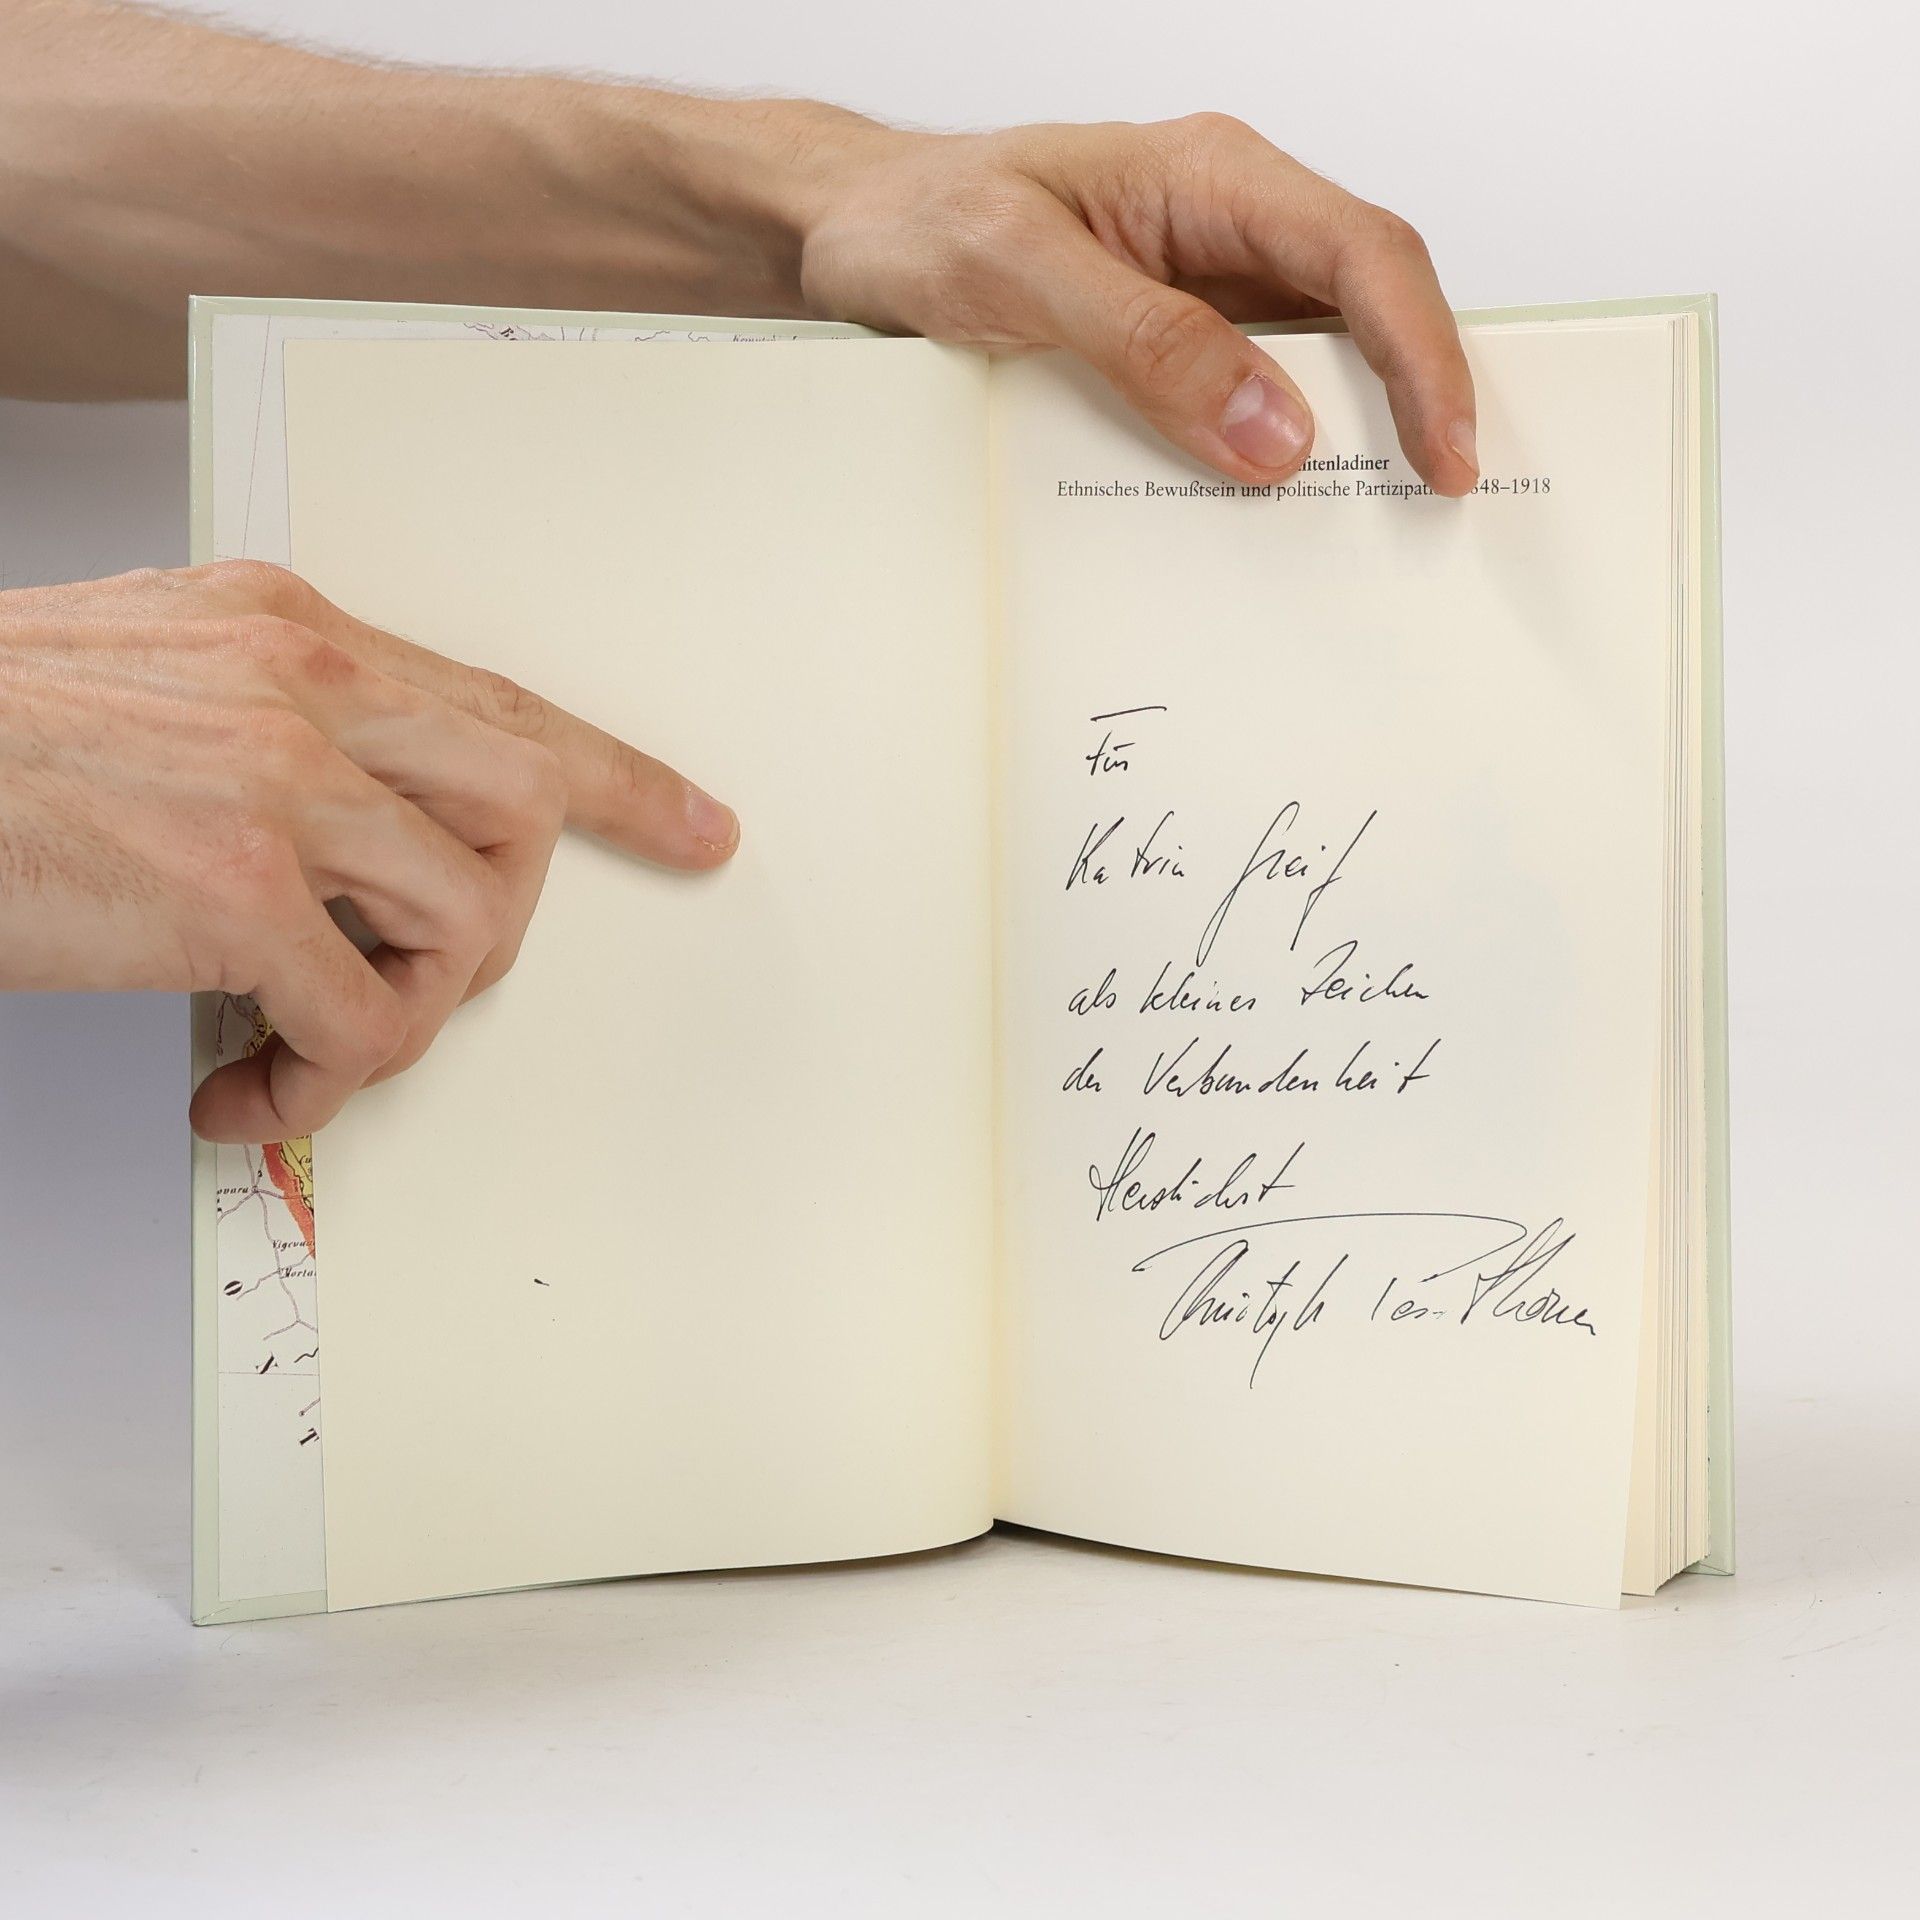 itenladiner
Ethnisches Bewußtsein und politische Partizipati 848–1918
Für
Katrin Greif
als kleines Zeichen
der Verbundenheit
Herzlichst
Christoph Thöner
ovara
Vigeva
Morta
T